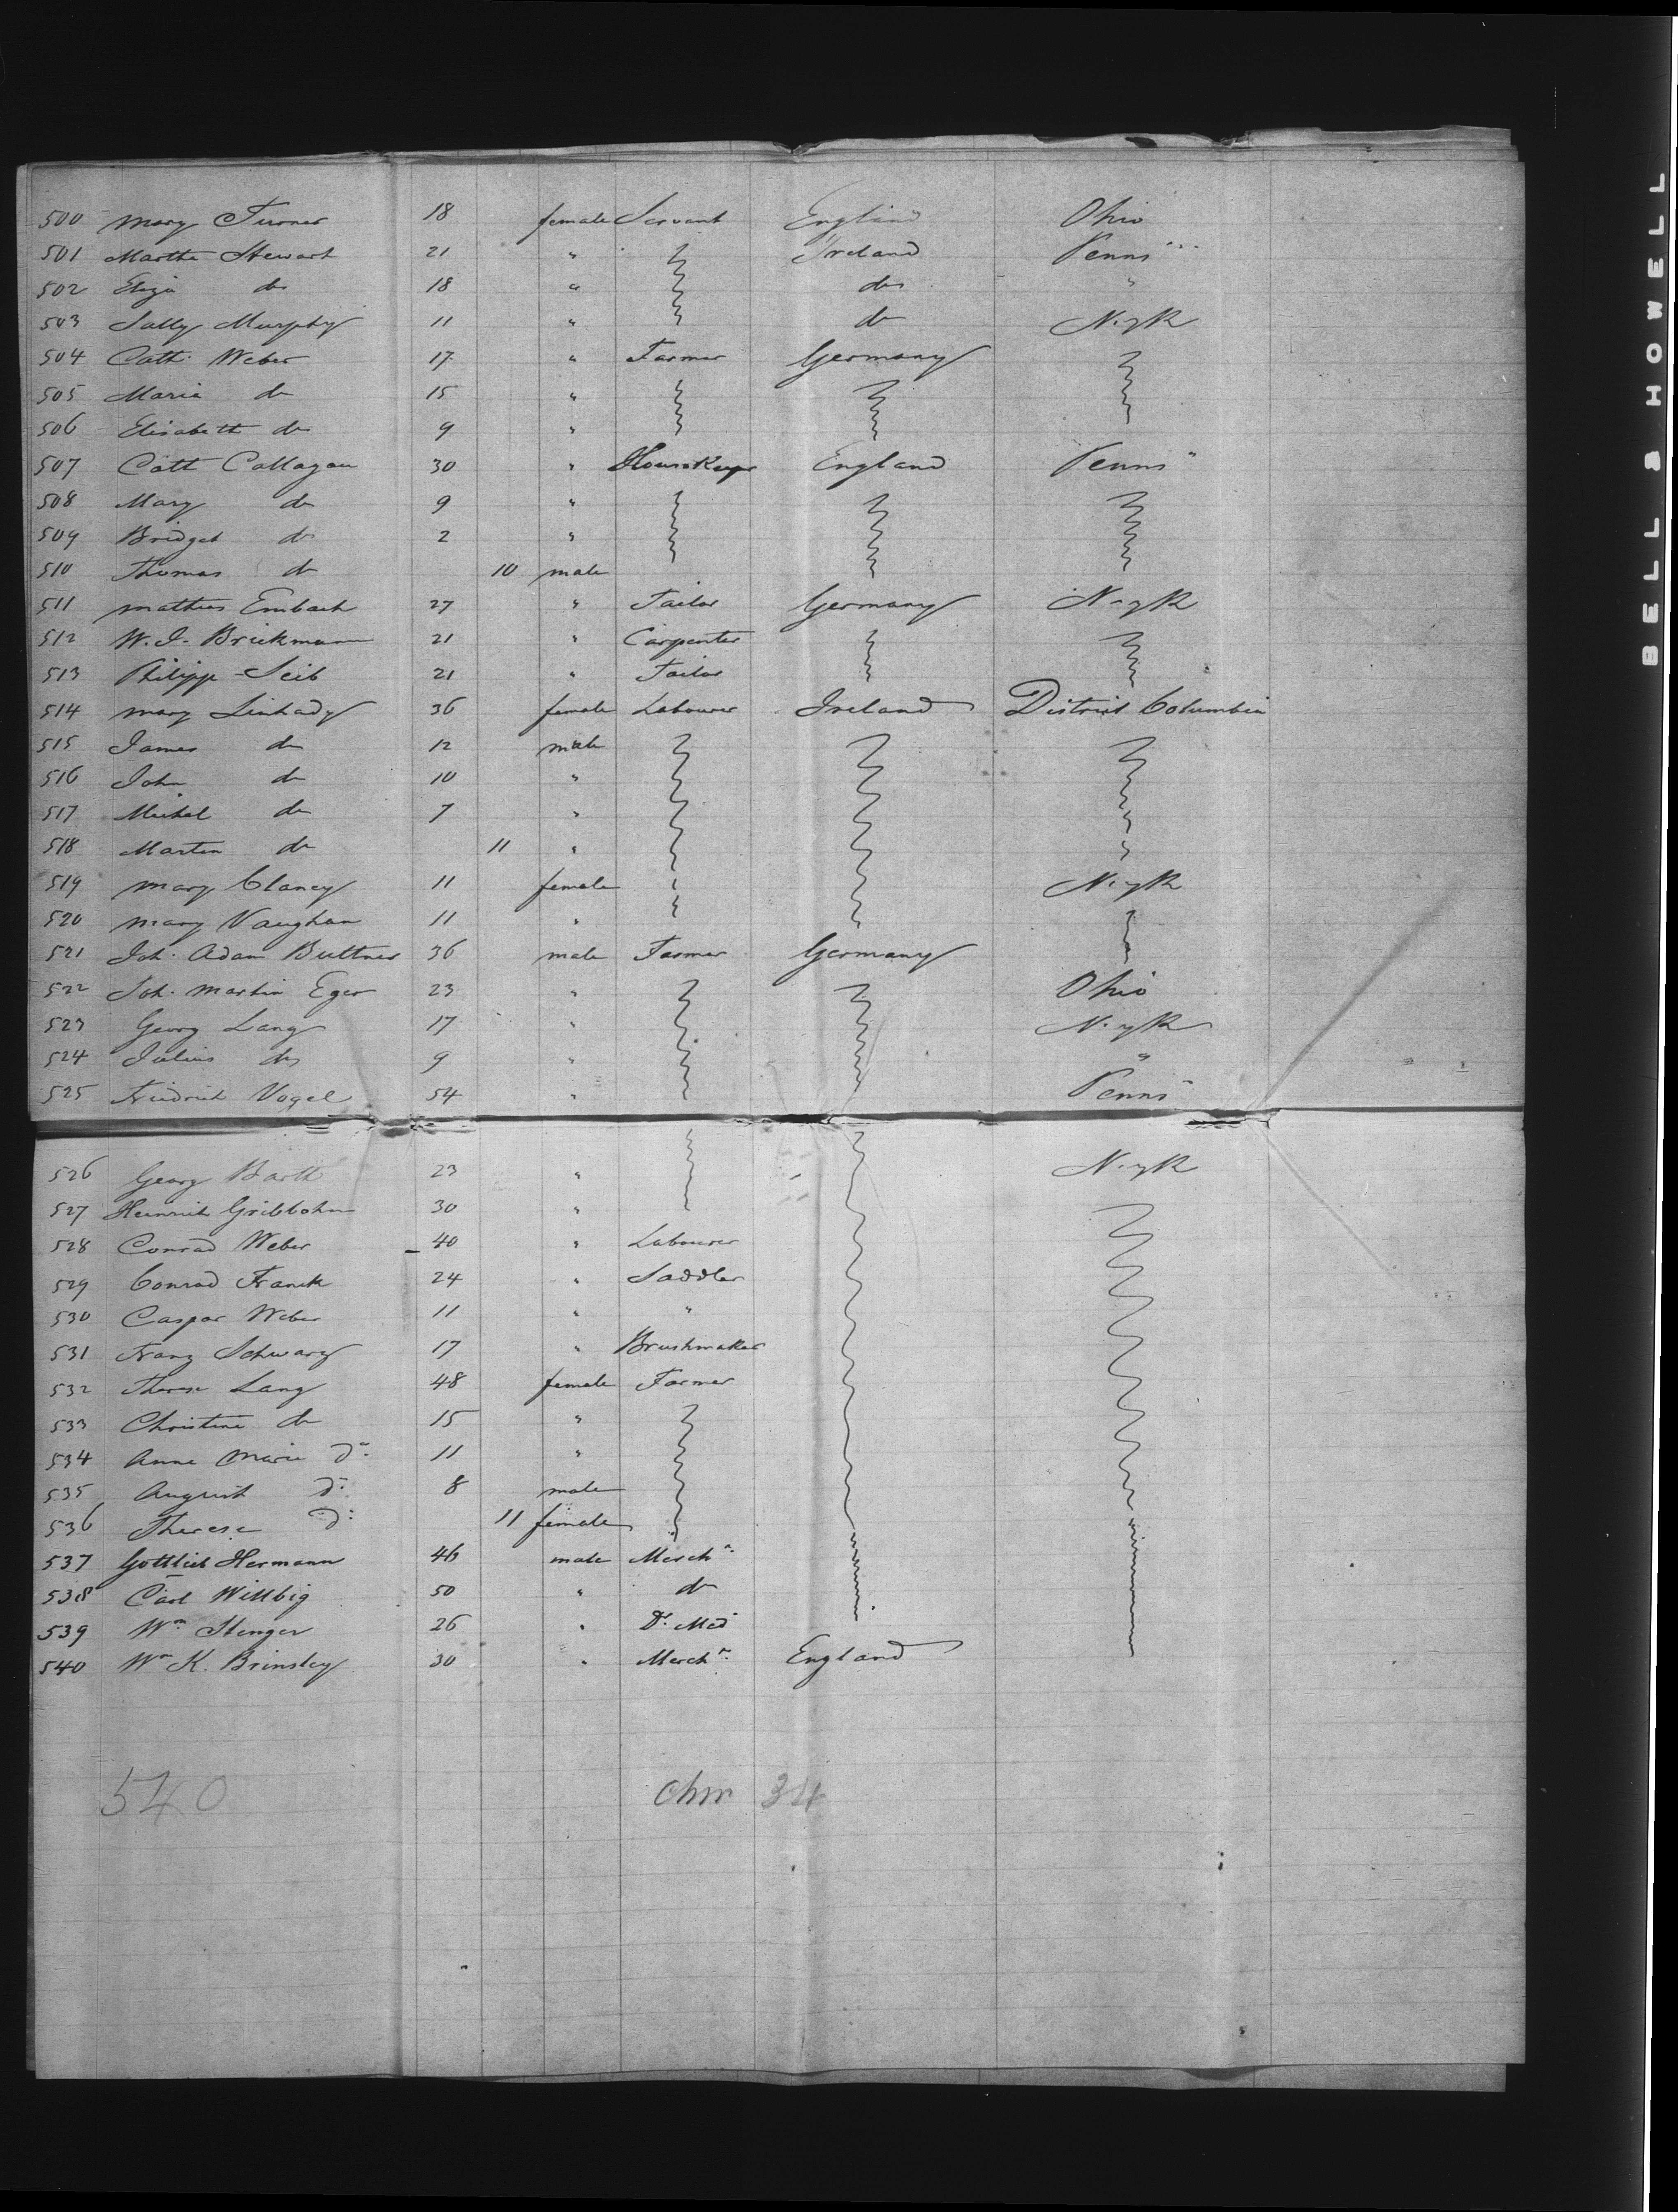 500 Mary Turner 18 female Servant England Ohio
501 Martha Stewart 21 " Ireland Penns
502 Eliza do 18 " do "
503 Sally Murphy 11 " do N-yk
504 Cath: Weber 17 " Farmer Germany
505 Maria do 15 "
506 Elisabeth do 9 "
507 Cath Callagan 30 " Housekeeper England Penns"
508 Mary do 9 "
509 Bridget do 2 "
510 Thomas do 10 male
511 Mathias Embach 27 " Tailor Germany N-yk
512 W. J. Brickmann 21 " Carpenter
513 Philipp Seib 21 " Tailor
514 Mary Linhady 36 female Labourer Ireland District Columbia
515 James do 12 male
516 John do 10 "
517 Michel do 7 "
518 Martin do 11 "
519 Mary Clancy 11 female N-yk
520 Mary Vaughan 11 "
521 Joh. Adam Buttner 36 male Farmer Germany
522 Joh. Martin Eger 23 " Ohio
523 Georg Lang 17 " N-yk
524 Julius do 9 " "
525 Friedrich Vogel 54 " Penns
526 Georg Barth 23 " N-yk
527 Heinrich Gribbohm 30 "
528 Conrad Weber 40 " Labourer
529 Conrad Franck 24 " Saddler
530 Caspar Weber 11 " "
531 Franz Schwarz 17 " Brushmaker
532 Therese Lang 48 female Farmer
533 Christine do 15 "
534 Anne Marie do 11 "
535 August do 8 male
536 Therese do 11 female
537 Gottlieb Hermann 46 male Mercht
538 Carl Willbig 50 " do
539 Wm Stenger 26 " Dr. Med
540 Wm K. Brinsley 30 " Mercht England
540 34
BELL & HOWELL